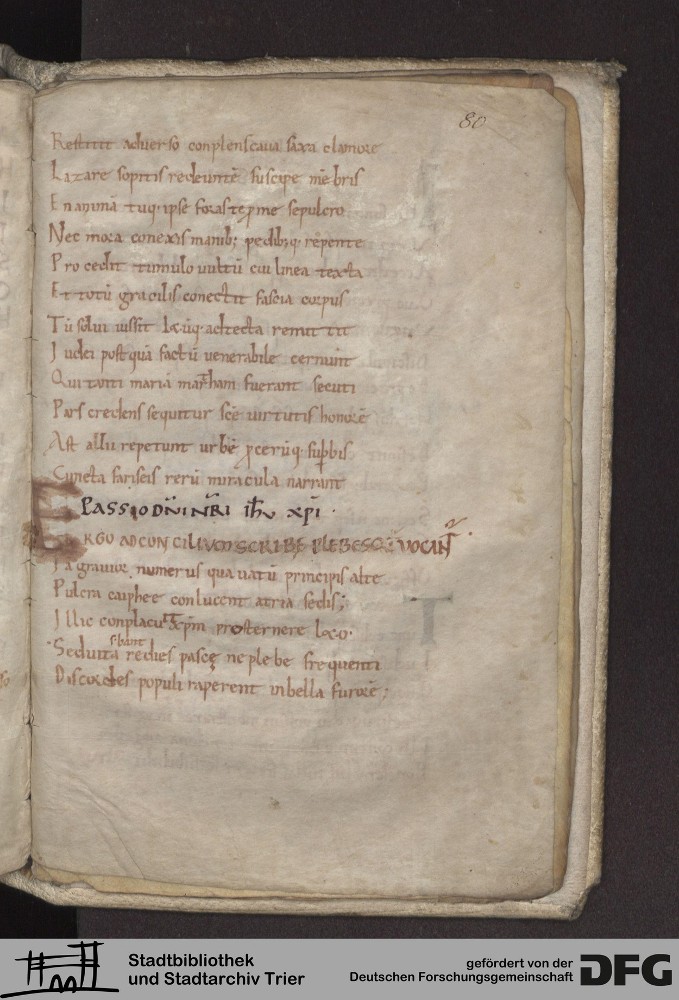 80
Restitit adverso conplens cava saxa clamore
Lazare sopitis redeuntē suscipe mēbris
En animā tuq; ipse foras te prome sepulcro
Nec mora conexis manib; pedibusq; repente
Procedit tumulo vultū cui linea texta
Et totū gracilis conectit fascia corpus
Tū solvi iussit
Judei postquā factū venerabile cernunt
Qui tanti mariā martham fuerant secuti
Pars credens sequitur scē virtutis honorē
Ast alii repetunt urbē procerūq; supbis
Cuncta fariseis rerū miracula narrant
PASSIO DNI NRI IHV XPI
ERGO AD CONCILIUM SCRIBE PLEBESQ; VOCANT
numerus qua vatū principis alte
Pulcra caiphee conlucent atria sedis;
Illic conplacuit xpm prosternere
Sed vitabant redies pascę ne plebe frequenti
Discordes populi raperent in bella furorē;
Stadtbibliothek
und Stadtarchiv Trier
gefördert von der
Deutschen Forschungsgemeinschaft
DFG